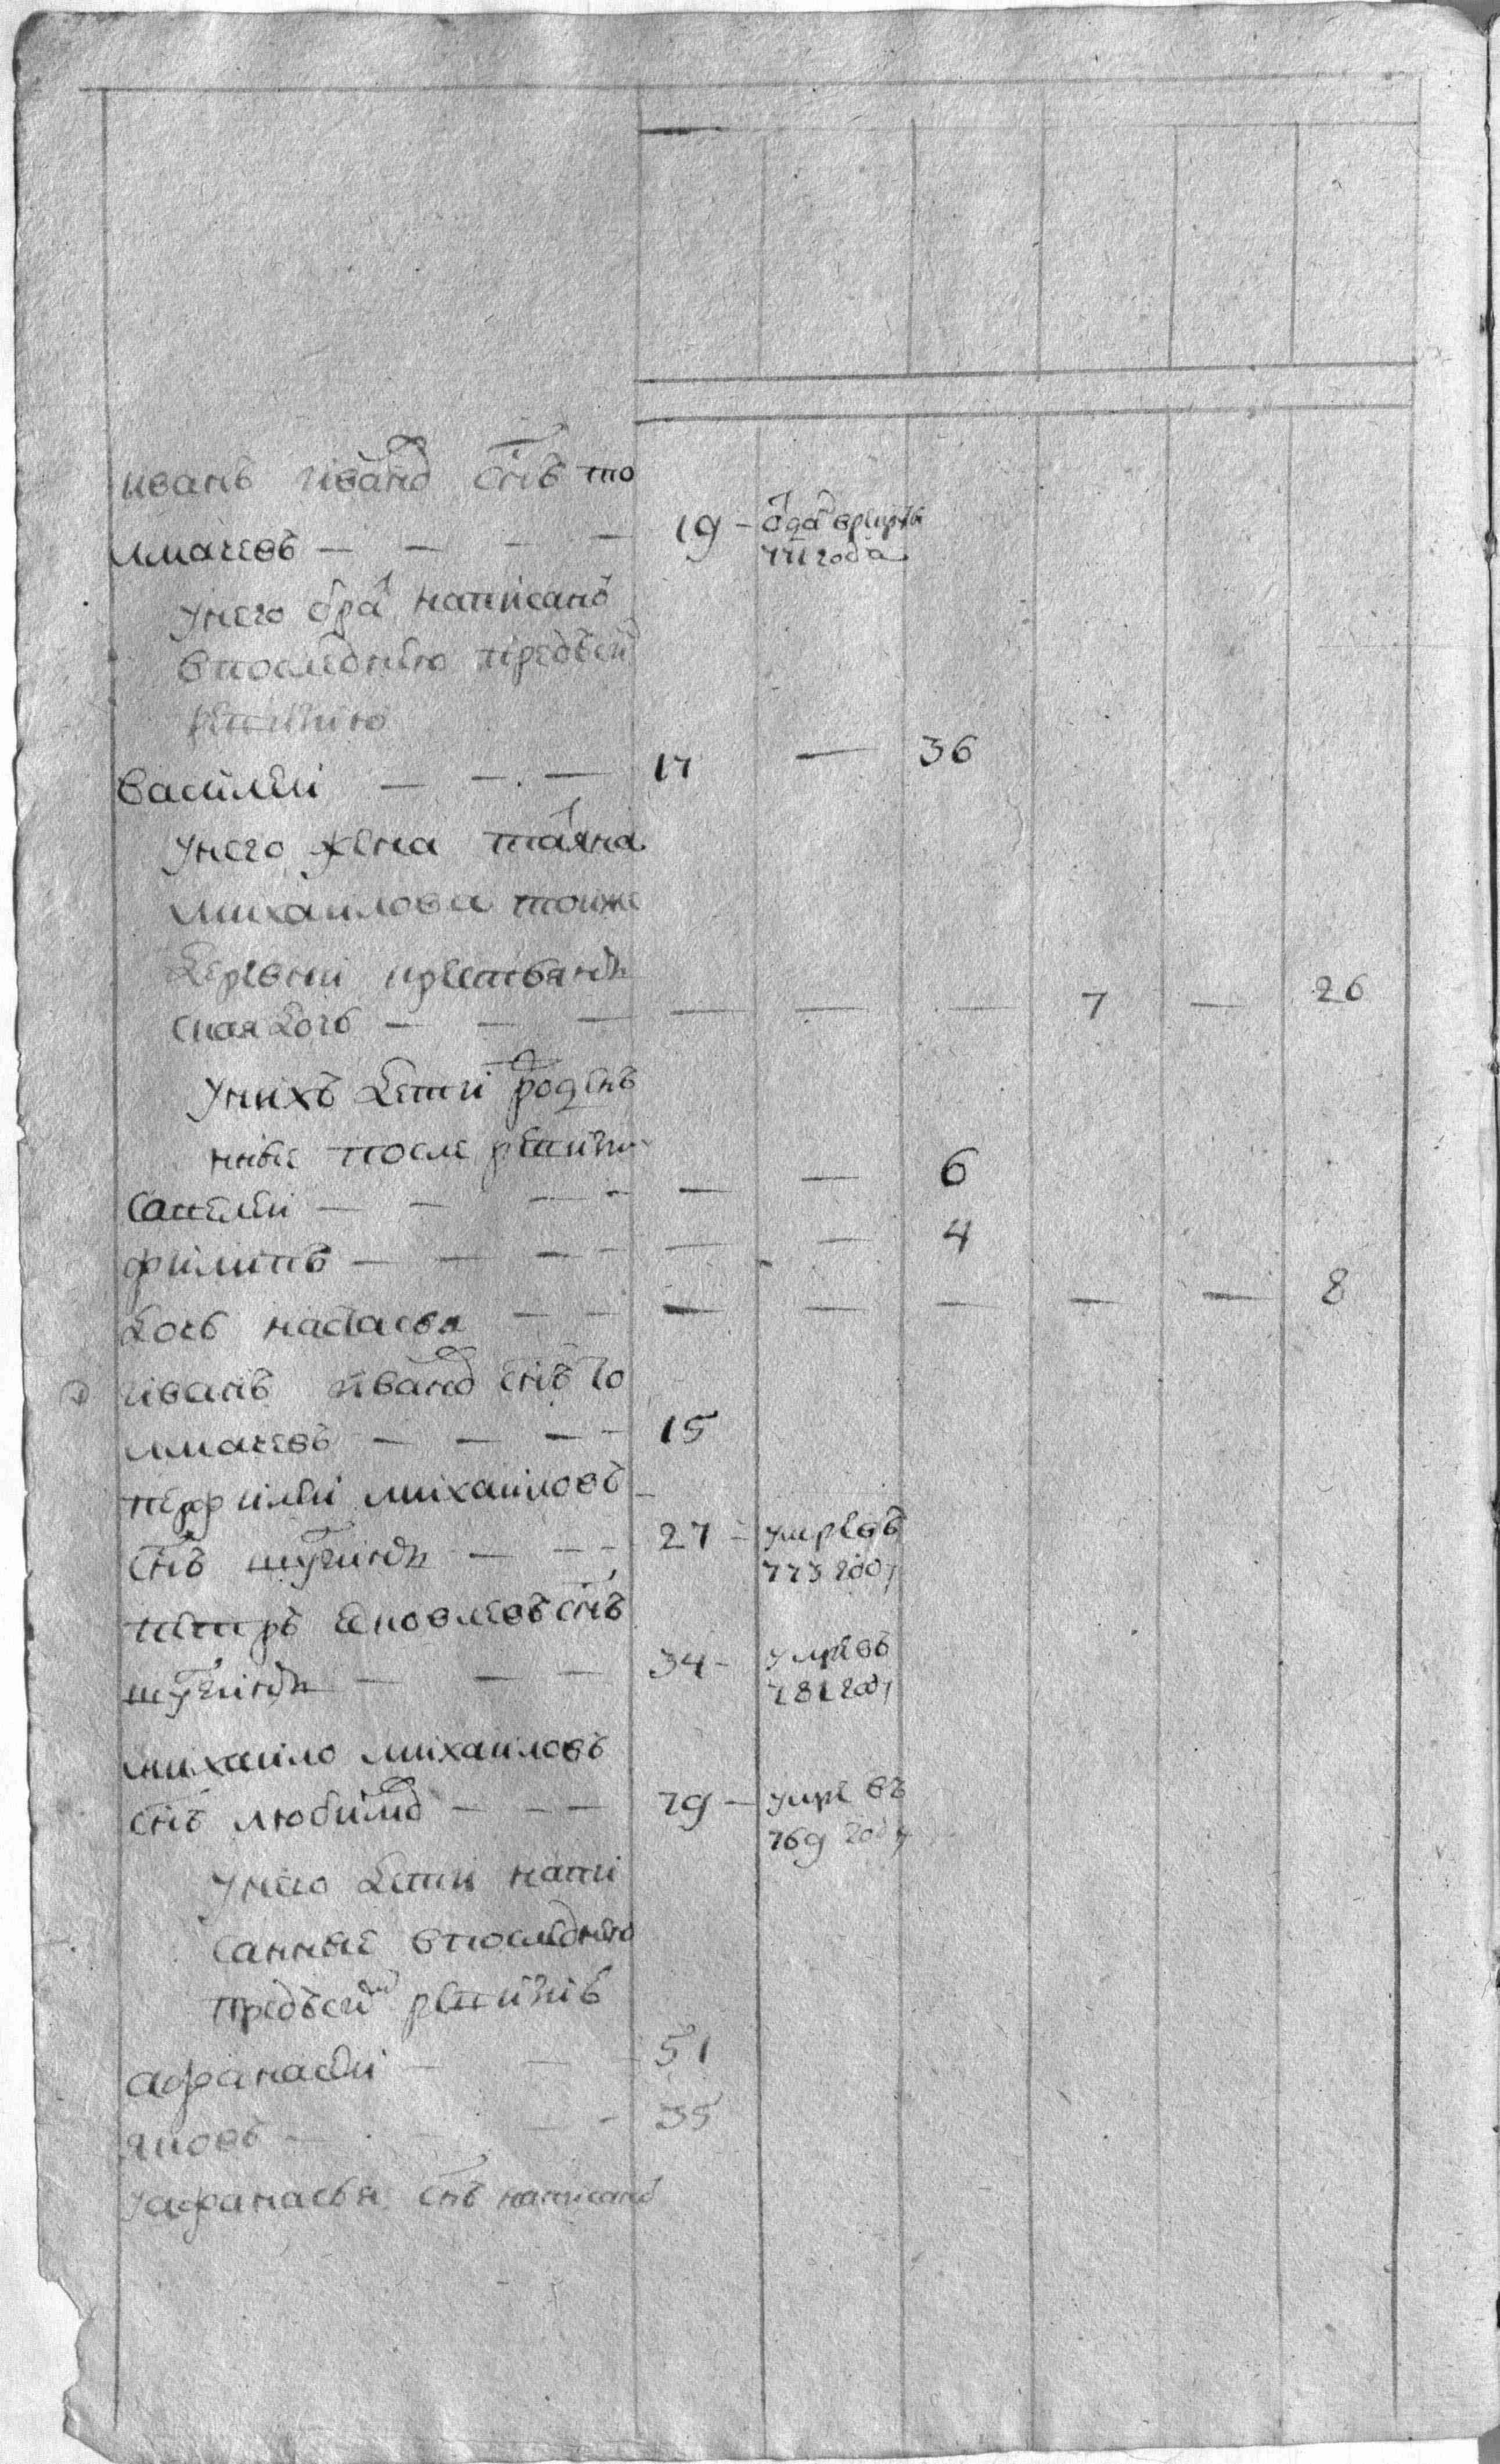 иванъ ивано͡в снъ то
лмачевъ — — — — 19 — ѡда врекру
771 года
унего бра написанъ
впоследнюю предсеи
ревизию
василеи — — — 17 — 36
унего жена таяна
михаилова тоиже
деревни крестьян
ская дочь — — — — — — 7 — 26
унихъ дети рожден
ные после ревизии
савелеи — — — — — 6
филипъ — — — — — — 4
дочь настасья — — — — — — — 8
иванъ ивано͡в снъ то
лмачевъ — — — — 15
перфилеи михаиловъ
снъ — — — 27 — умре въ
773 году
петръ яковлевъ снъ
— — — 34 — умре въ
781 году
михаило михаиловъ
снъ любимо͡в — — — 79 — умре въ
769 году
унего дети напи
санные впоследнею
предсеи ревизиѣ
афанасеи — — — 51
яковъ — — — — 35
уафанасья снъ написанъ